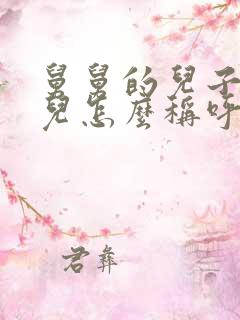 舅舅的兒子
兒怎麼稱呼
君彝